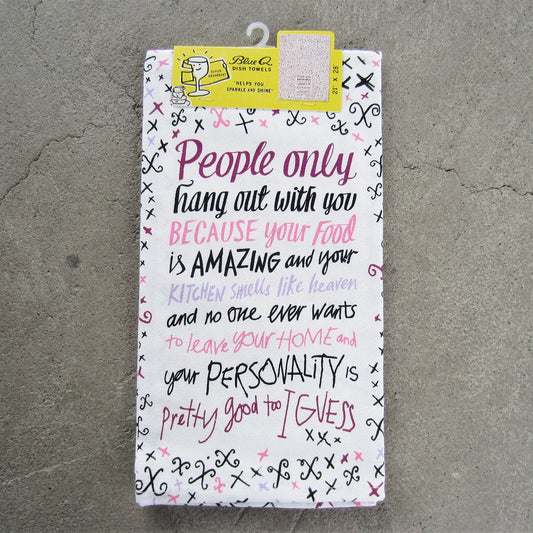 Blue Q
DISH TOWELS
SUPER-ABSORBENT
"HELPS YOU
SPARKLE AND SHINE"
21" x 28"
People only
hang out with you
BECAUSE your FOOD
is AMAZING and your
KITCHEN smells like heaven
and no one ever wants
to leave your HOME and
your PERSONALITY is
pretty good too I GUESS